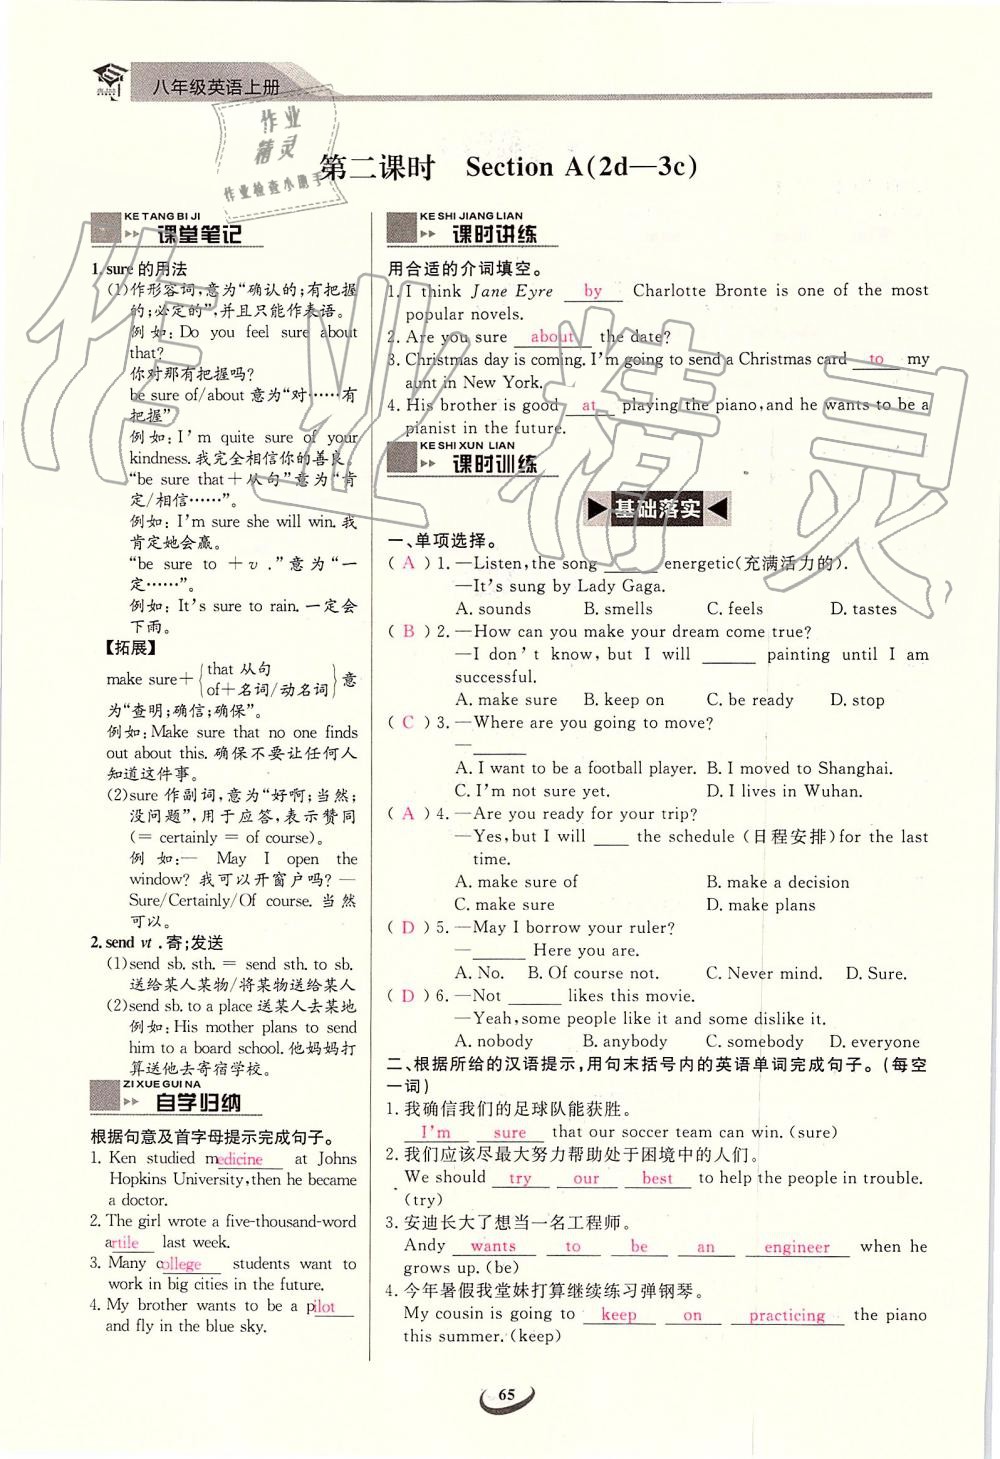 八年级英语上册
作业
精灵
作业检查小助手
第二课时 Section A(2d—3c)
KE TANG BI JI
课堂笔记
1. sure 的用法
(1)作形容词,意为“确认的;有把握
的;必定的”,并且只能作表语。
例如:Do you feel sure about
that?
你对那有把握吗?
be sure of/about 意为“对……有
把握”
例如:I'm quite sure of your
kindness. 我完全相信你的善良。
“be sure that+从句”意为“肯
定/相信……”。
例如:I'm sure she will win. 我
肯定她会赢。
“be sure to +v.”意为“一
定……”。
例如:It's sure to rain. 一定会
下雨。
【拓展】
make sure+{that 从句
of+名词/动名词}意
为“查明;确信;确保”。
例如:Make sure that no one finds
out about this. 确保不要让任何人
知道这件事。
(2)sure 作副词,意为“好啊;当然;
没问题”,用于应答,表示赞同
(= certainly = of course)。
例如:— May I open the
window? 我可以开窗户吗? —
Sure/Certainly/Of course. 当然
可以。
2. send vt. 寄;发送
(1)send sb. sth. = send sth. to sb.
送给某人某物/将某物送给某人
(2)send sb. to a place 送某人去某地
例如:His mother plans to send
him to a board school. 他妈妈打
算送他去寄宿学校。
ZI XUE GUI NA
自学归纳
根据句意及首字母提示完成句子。
1. Ken studied medicine at Johns
Hopkins University, then he became
a doctor.
2. The girl wrote a five-thousand-word
artile last week.
3. Many college students want to
work in big cities in the future.
4. My brother wants to be a pilot
and fly in the blue sky.
KE SHI JIANG LIAN
课时讲练
用合适的介词填空。
1. I think Jane Eyre by Charlotte Bronte is one of the most
popular novels.
2. Are you sure about the date?
3. Christmas day is coming. I'm going to send a Christmas card to my
aunt in New York.
4. His brother is good at playing the piano, and he wants to be a
pianist in the future.
KE SHI XUN LIAN
课时训练
基础落实
一、单项选择。
( A )1. —Listen, the song ______ energetic(充满活力的).
—It's sung by Lady Gaga.
A. sounds B. smells C. feels D. tastes
( B )2. —How can you make your dream come true?
—I don't know, but I will ______ painting until I am
successful.
A. make sure B. keep on C. be ready D. stop
( C )3. —Where are you going to move?
—______
A. I want to be a football player. B. I moved to Shanghai.
C. I'm not sure yet. D. I lives in Wuhan.
( A )4. —Are you ready for your trip?
—Yes, but I will ____ the schedule (日程安排) for the last
time.
A. make sure of B. make a decision
C. make sure D. make plans
( D )5. —May I borrow your ruler?
—______ Here you are.
A. No. B. Of course not. C. Never mind. D. Sure.
( D )6. —Not ______ likes this movie.
—Yeah, some people like it and some dislike it.
A. nobody B. anybody C. somebody D. everyone
二、根据所给的汉语提示,用句末括号内的英语单词完成句子。(每空
一词)
1. 我确信我们的足球队能获胜。
I'm sure that our soccer team can win. (sure)
2. 我们应该尽最大努力帮助处于困境中的人们。
We should try our best to help the people in trouble.
(try)
3. 安迪长大了想当一名工程师。
Andy wants to be an engineer when he
grows up. (be)
4. 今年暑假我堂妹打算继续练习弹钢琴。
My cousin is going to keep on practicing the piano
this summer. (keep)
65
作业精灵